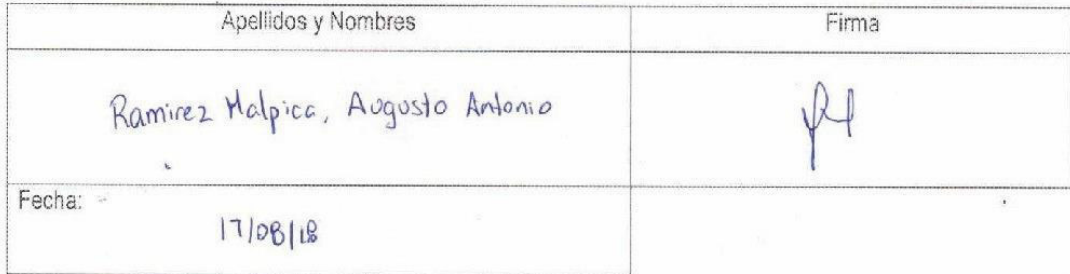 Apellidos y Nombres
Firma
Ramirez Malpica, Augusto Antonio
Fecha:
17/08/18